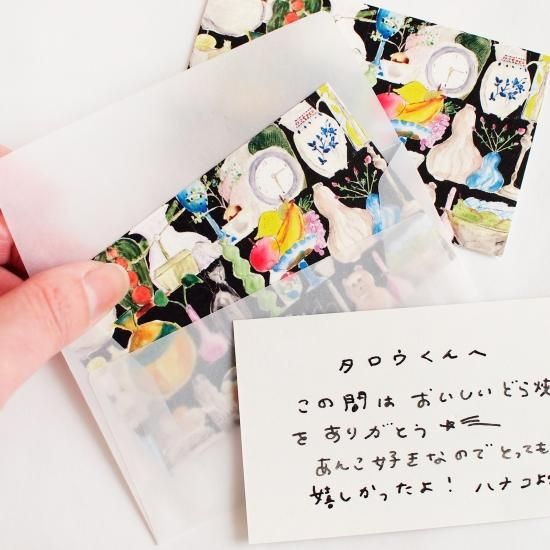 タロウくんへ
この間は おいしいどら焼
をありがとう
あんこ好きなのでとっても
嬉しかったよ! ハナコより